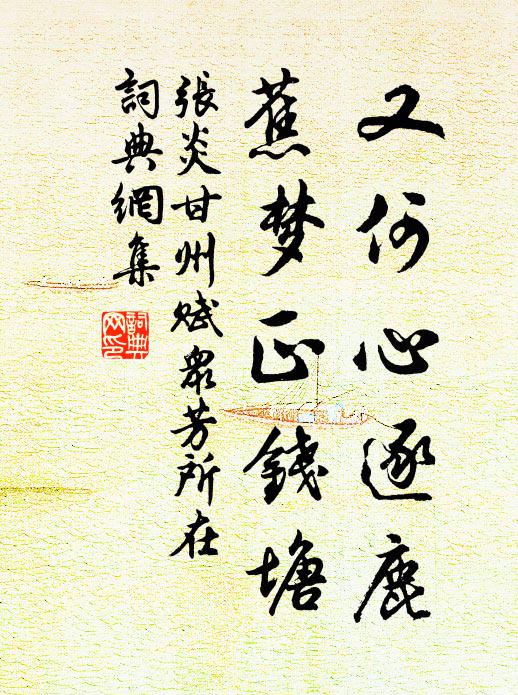 又何心逐鹿
蕉梦正錢塘
張炎甘州賦衆芳所在
詞典網集
詞典
网印